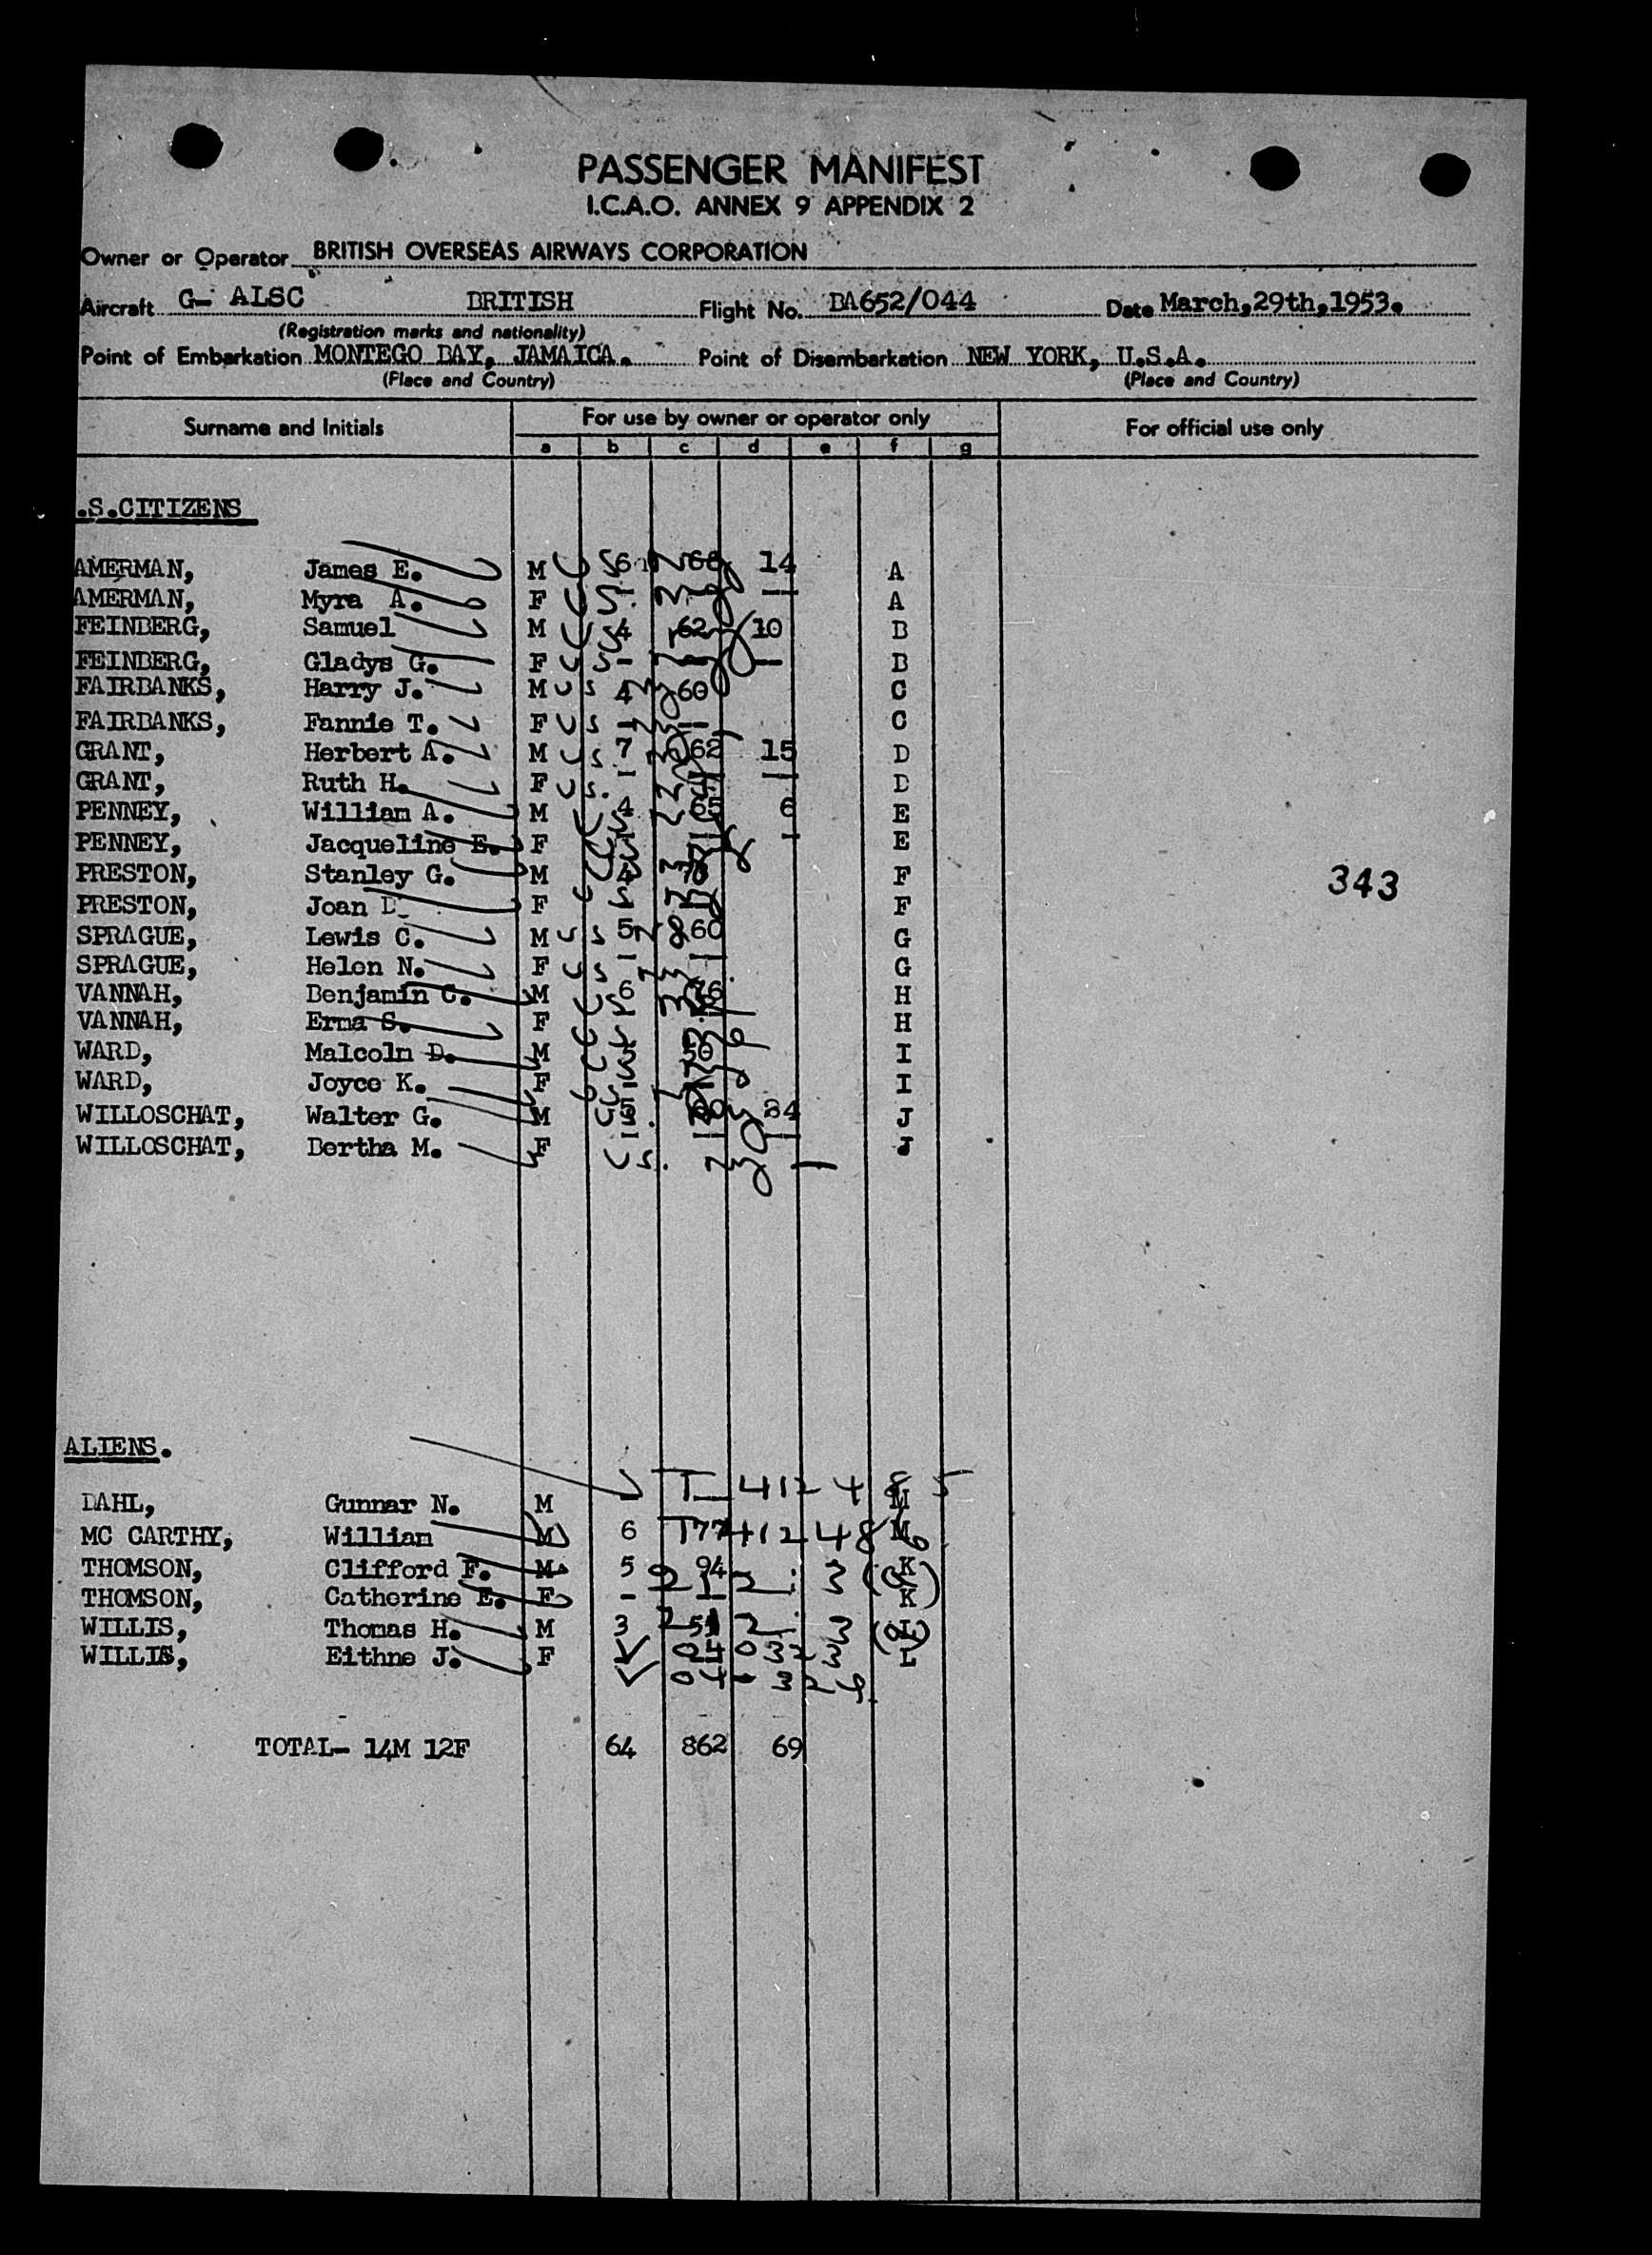 PASSENGER MANIFEST
I.C.A.O. ANNEX 9 APPENDIX 2
Owner or Operator BRITISH OVERSEAS AIRWAYS CORPORATION
Aircraft G- ALSC BRITISH Flight No. BA652/044 Date March,29th,1953.
(Registration marks and nationality)
Point of Embarkation MONTEGO BAY, JAMAICA. Point of Disembarkation NEW YORK, U.S.A.
(Place and Country) (Place and Country)
Surname and Initials For use by owner or operator only For official use only
a b c d e f g
.S.CITIZENS
AMERMAN, James E. M 6 14 A
AMERMAN, Myra A. F - - A
FEINBERG, Samuel M 4 62 10 B
FEINBERG, Gladys G. F US - - - B
FAIRBANKS, Harry J. M US 4 60 C
FAIRBANKS, Fannie T. F US - - C
GRANT, Herbert A. M US 7 62 15 D
GRANT, Ruth H. F US. - - - D
PENNEY, William A. M 4 65 6 E
PENNEY, Jacqueline E. F - - - E
PRESTON, Stanley G. M 4 F
PRESTON, Joan D. F F
343
SPRAGUE, Lewis C. M US 5 60 G
SPRAGUE, Helen N. F US - - G
VANNAH, Benjamin C. M US 6 76 H
VANNAH, Erma S. F H
WARD, Malcoln D. M I
WARD, Joyce K. F I
WILLOSCHAT, Walter G. M 5 34 J
WILLOSCHAT, Bertha M. F US. - - - J
ALIENS.
DAHL, Gunnar N. M - T 412485 M
MC CARTHY, Willian M 6 77 T 412486 M
THOMSON, Clifford F. M 5 94 K
THOMSON, Catherine E. F - - K
WILLIS, Thomas H. M 3 51 L
WILLIS, Eithne J. F L
TOTAL- 14M 12F 64 862 69